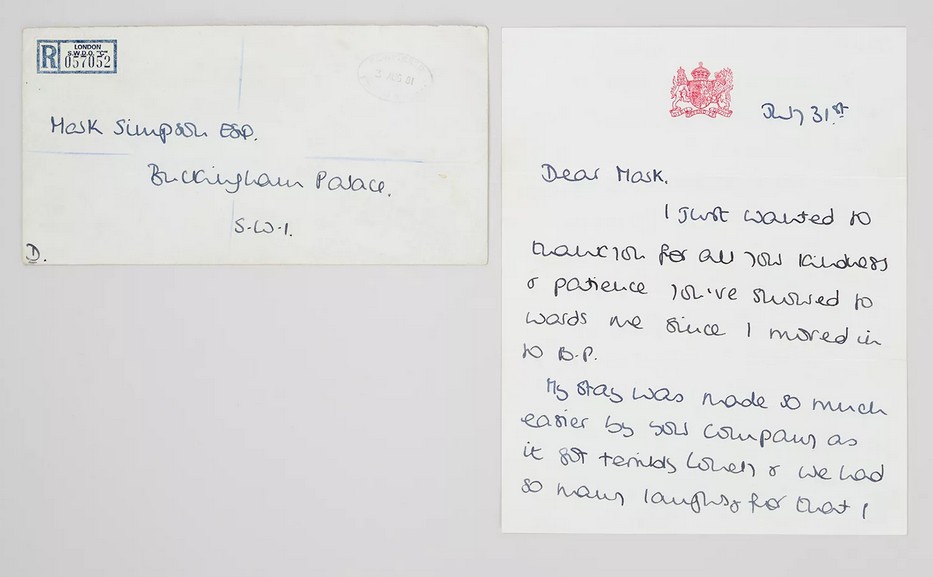 R
LONDON
S.W.D.O. "C"
057052
3 AUG 81
Mark Simpson ESQ.
Buckingham Palace.
S.W.1.
D.
July 31st
Dear Mark.
I Just wanted to
thank you for all your kindness
& patience you've showed to
wards me since I moved in
to B.P.
My stay was made so much
easier by your company as
it got terribly lonely & we had
so many laughs, for that I